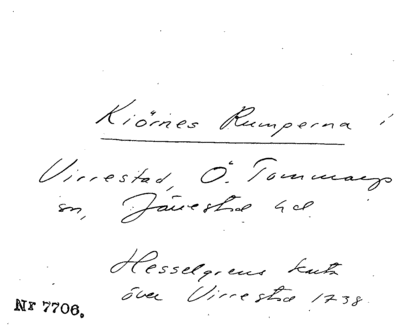 Kiörnes Rumperna i
Virrestad, Ö. Tommarps
sn, Järrestad hd.
Hesselgrens karta
över Virrestad 1738.
Nr 7706.